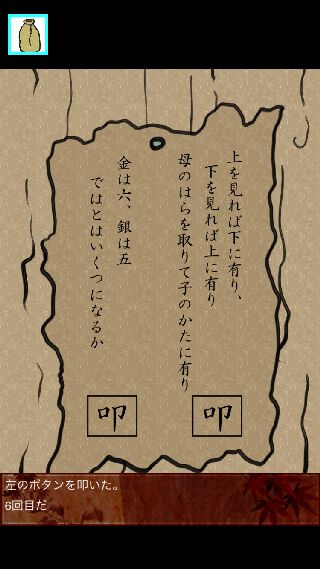 上を見れば下に有り、
下を見れば上に有り
母のはらを取りて子のかたに有り
金は六、銀は五
ではとはいくつになるか
叩
叩
左のボタンを叩いた。
6回目だ